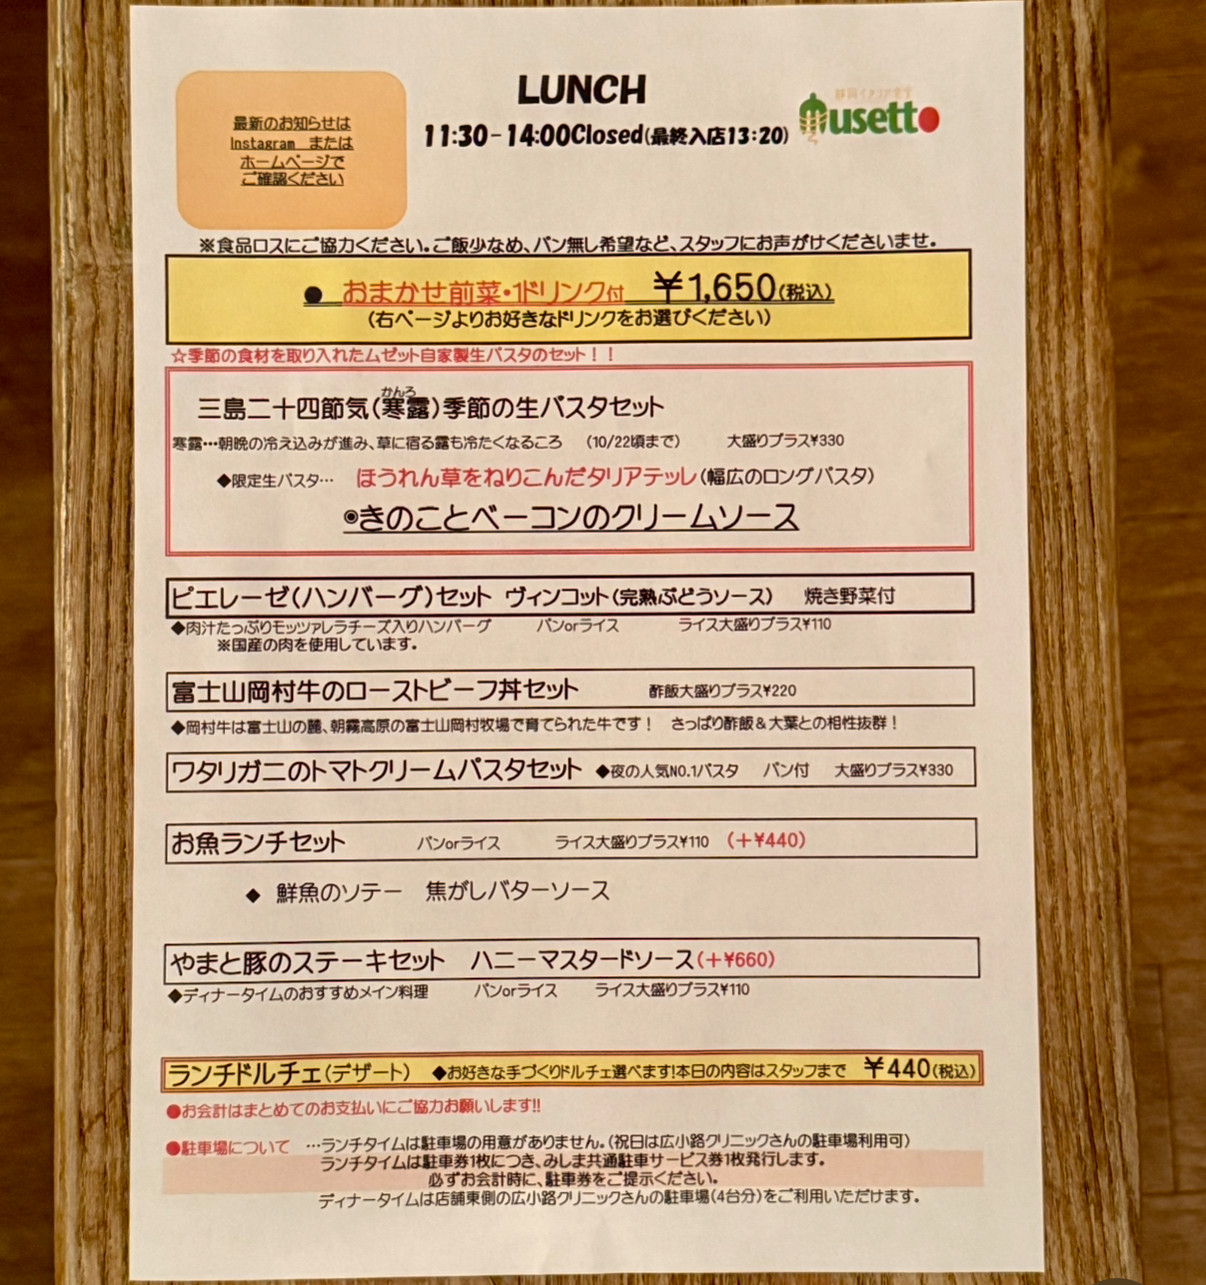 LUNCH
11:30-14:00Closed(最終入店13:20)
最新のお知らせは
Instagram または
ホームページで
ご確認ください
usetto
※食品ロスにご協力ください。ご飯少なめ、パン無し希望など、スタッフにお声がけくださいませ。
● おまかせ前菜・1ドリンク付 ¥1,650(税込)
(右ページよりお好きなドリンクをお選びください)
☆季節の食材を取り入れたムゼット自家製生パスタのセット！！
かんろ
三島二十四節気(寒露)季節の生パスタセット
寒露…朝晩の冷え込みが進み、草に宿る露も冷たくなるころ (10/22頃まで) 大盛りプラス¥330
◆限定生パスタ… ほうれん草をねりこんだタリアテッレ(幅広のロングパスタ)
◉きのことベーコンのクリームソース
ピエレーゼ(ハンバーグ)セット ヴィンコット(完熟ぶどうソース) 焼き野菜付
◆肉汁たっぷりモッツァレラチーズ入りハンバーグ パンorライス ライス大盛りプラス¥110
※国産の肉を使用しています。
富士山岡村牛のローストビーフ丼セット 酢飯大盛りプラス¥220
◆岡村牛は富士山の麓、朝霧高原の富士山岡村牧場で育てられた牛です！ さっぱり酢飯＆大葉との相性抜群！
ワタリガニのトマトクリームパスタセット ◆夜の人気NO.1パスタ パン付 大盛りプラス¥330
お魚ランチセット パンorライス ライス大盛りプラス¥110 (+¥440)
◆ 鮮魚のソテー 焦がしバターソース
やまと豚のステーキセット ハニーマスタードソース(+¥660)
◆ディナータイムのおすすめメイン料理 パンorライス ライス大盛りプラス¥110
ランチドルチェ(デザート) ◆お好きな手づくりドルチェ選べます!本日の内容はスタッフまで ¥440(税込)
●お会計はまとめてのお支払いにご協力お願いします!!
●駐車場について …ランチタイムは駐車場の用意がありません。(祝日は広小路クリニックさんの駐車場利用可)
ランチタイムは駐車券1枚につき、みしま共通駐車サービス券1枚発行します。
必ずお会計時に、駐車券をご提示ください。
ディナータイムは店舗東側の広小路クリニックさんの駐車場(4台分)をご利用いただけます。